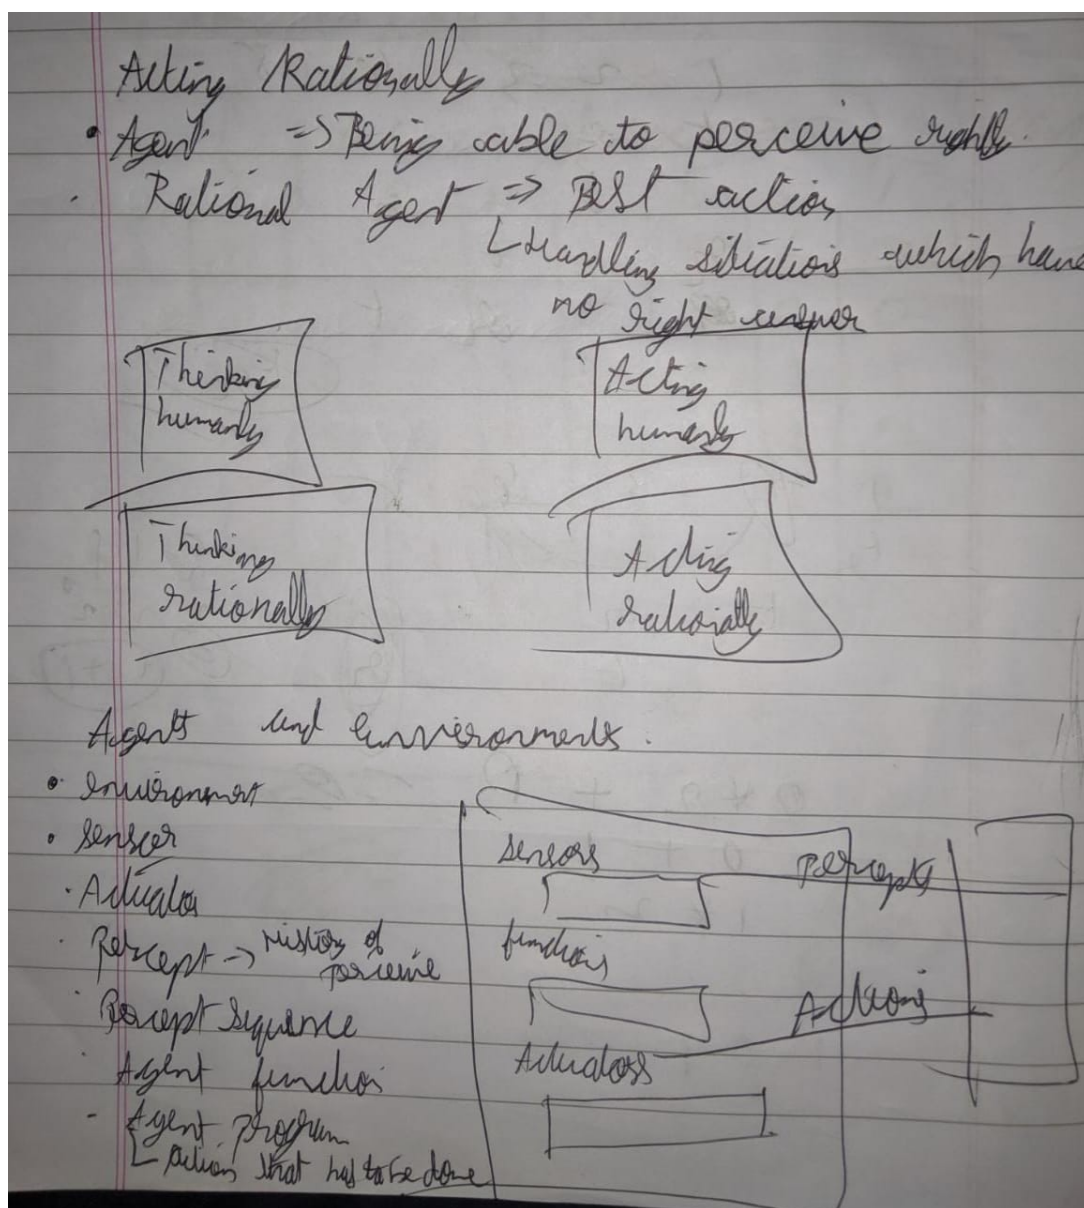 Acting Rationally
• Agent => Being able to perceive rightly.
. Rational Agent => Best action
Handling situations which have
no right answer
Thinking
humanly
Acting
humanly
Thinking
rationally
Acting
rationally
Agents and environments.
• environment
• sensor
. Actuator
. Percept -> History of
perceive
. Percept Sequence
Agent function
- Agent program
Actions that has to be done
sensors
Percepts
functions
Actions
Actuators